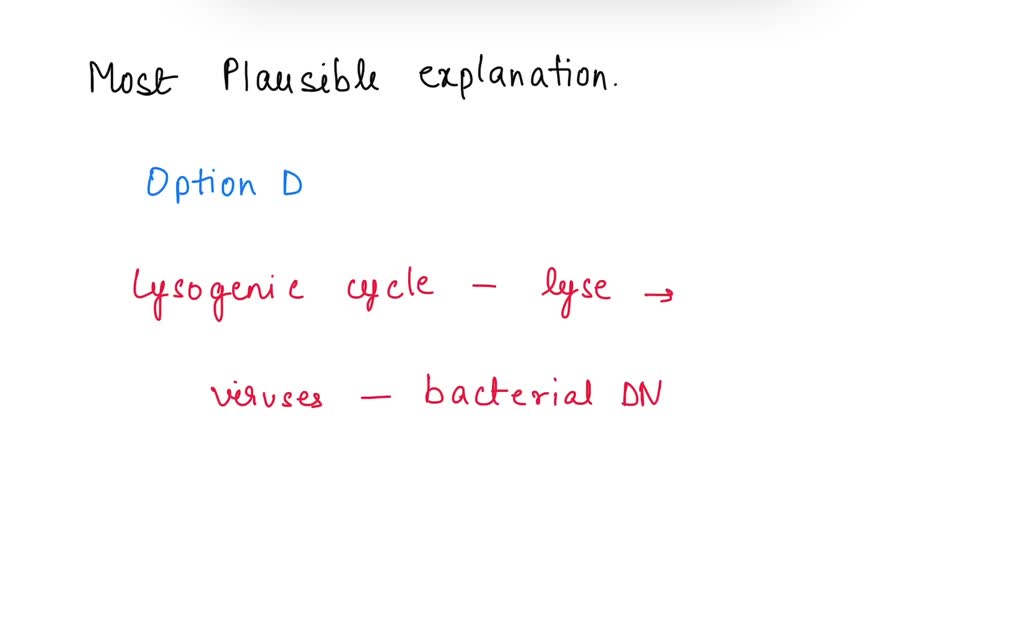 Most Plausible explanation.
Option D
Lysogenic cycle – lyse →
viruses – bacterial DN